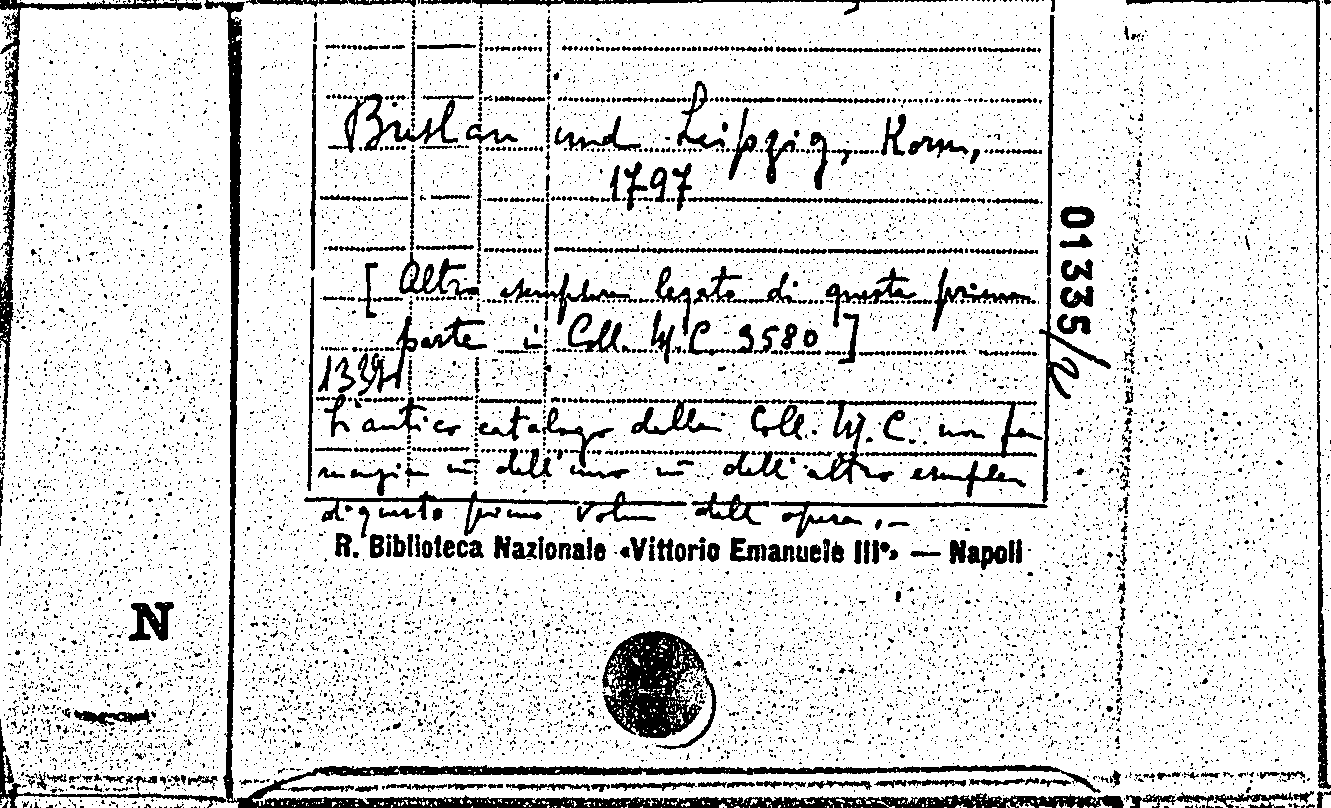 Breslau und Leipzig, Korn,
1797
[ Altro esemplare legato di questa prima
parte è Coll. M. C. 3580 ]
L'antico catalogo della Coll. M. C. non fa
menzione nè dell'uno nè dell'altro esemplare
di questo primo volume dell'opera. –
01335/2
R. Biblioteca Nazionale «Vittorio Emanuele III°» — Napoli
N